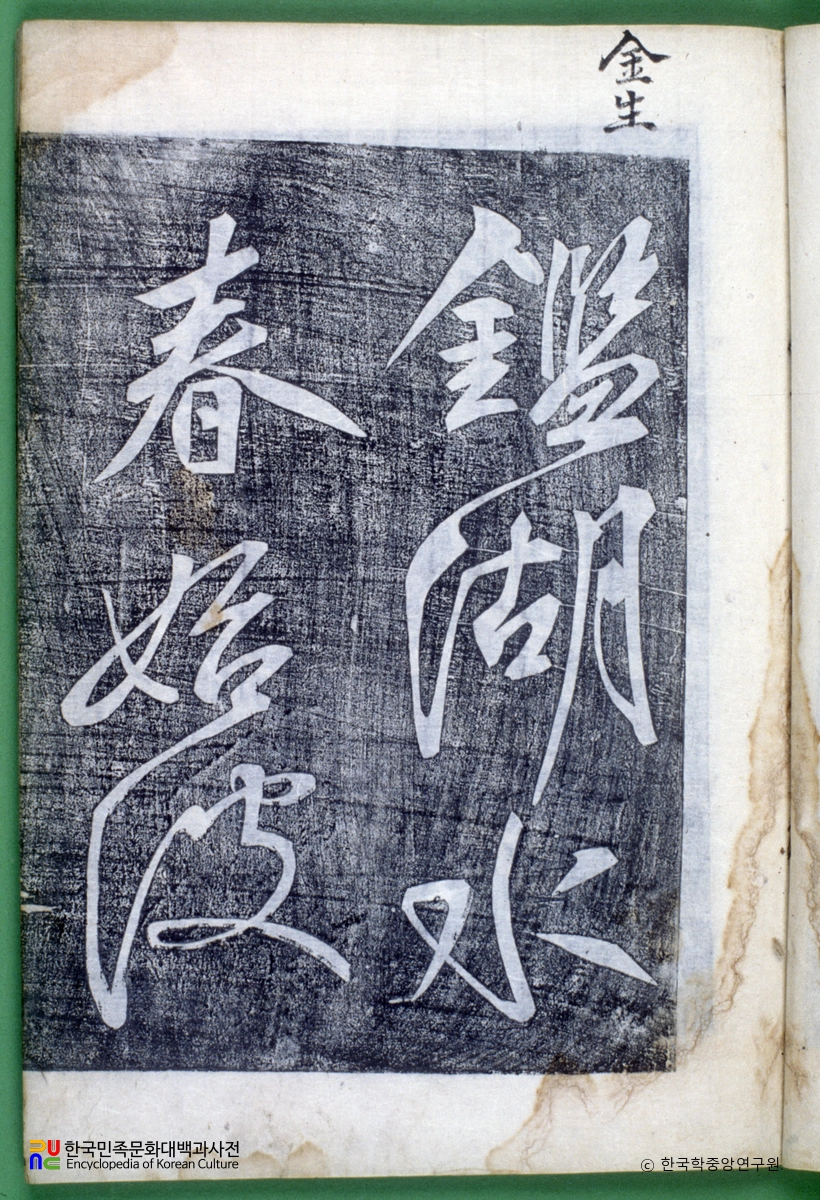 金生
鑑湖水
春始波
한국민족문화대백과사전
Encyclopedia of Korean Culture
© 한국학중앙연구원